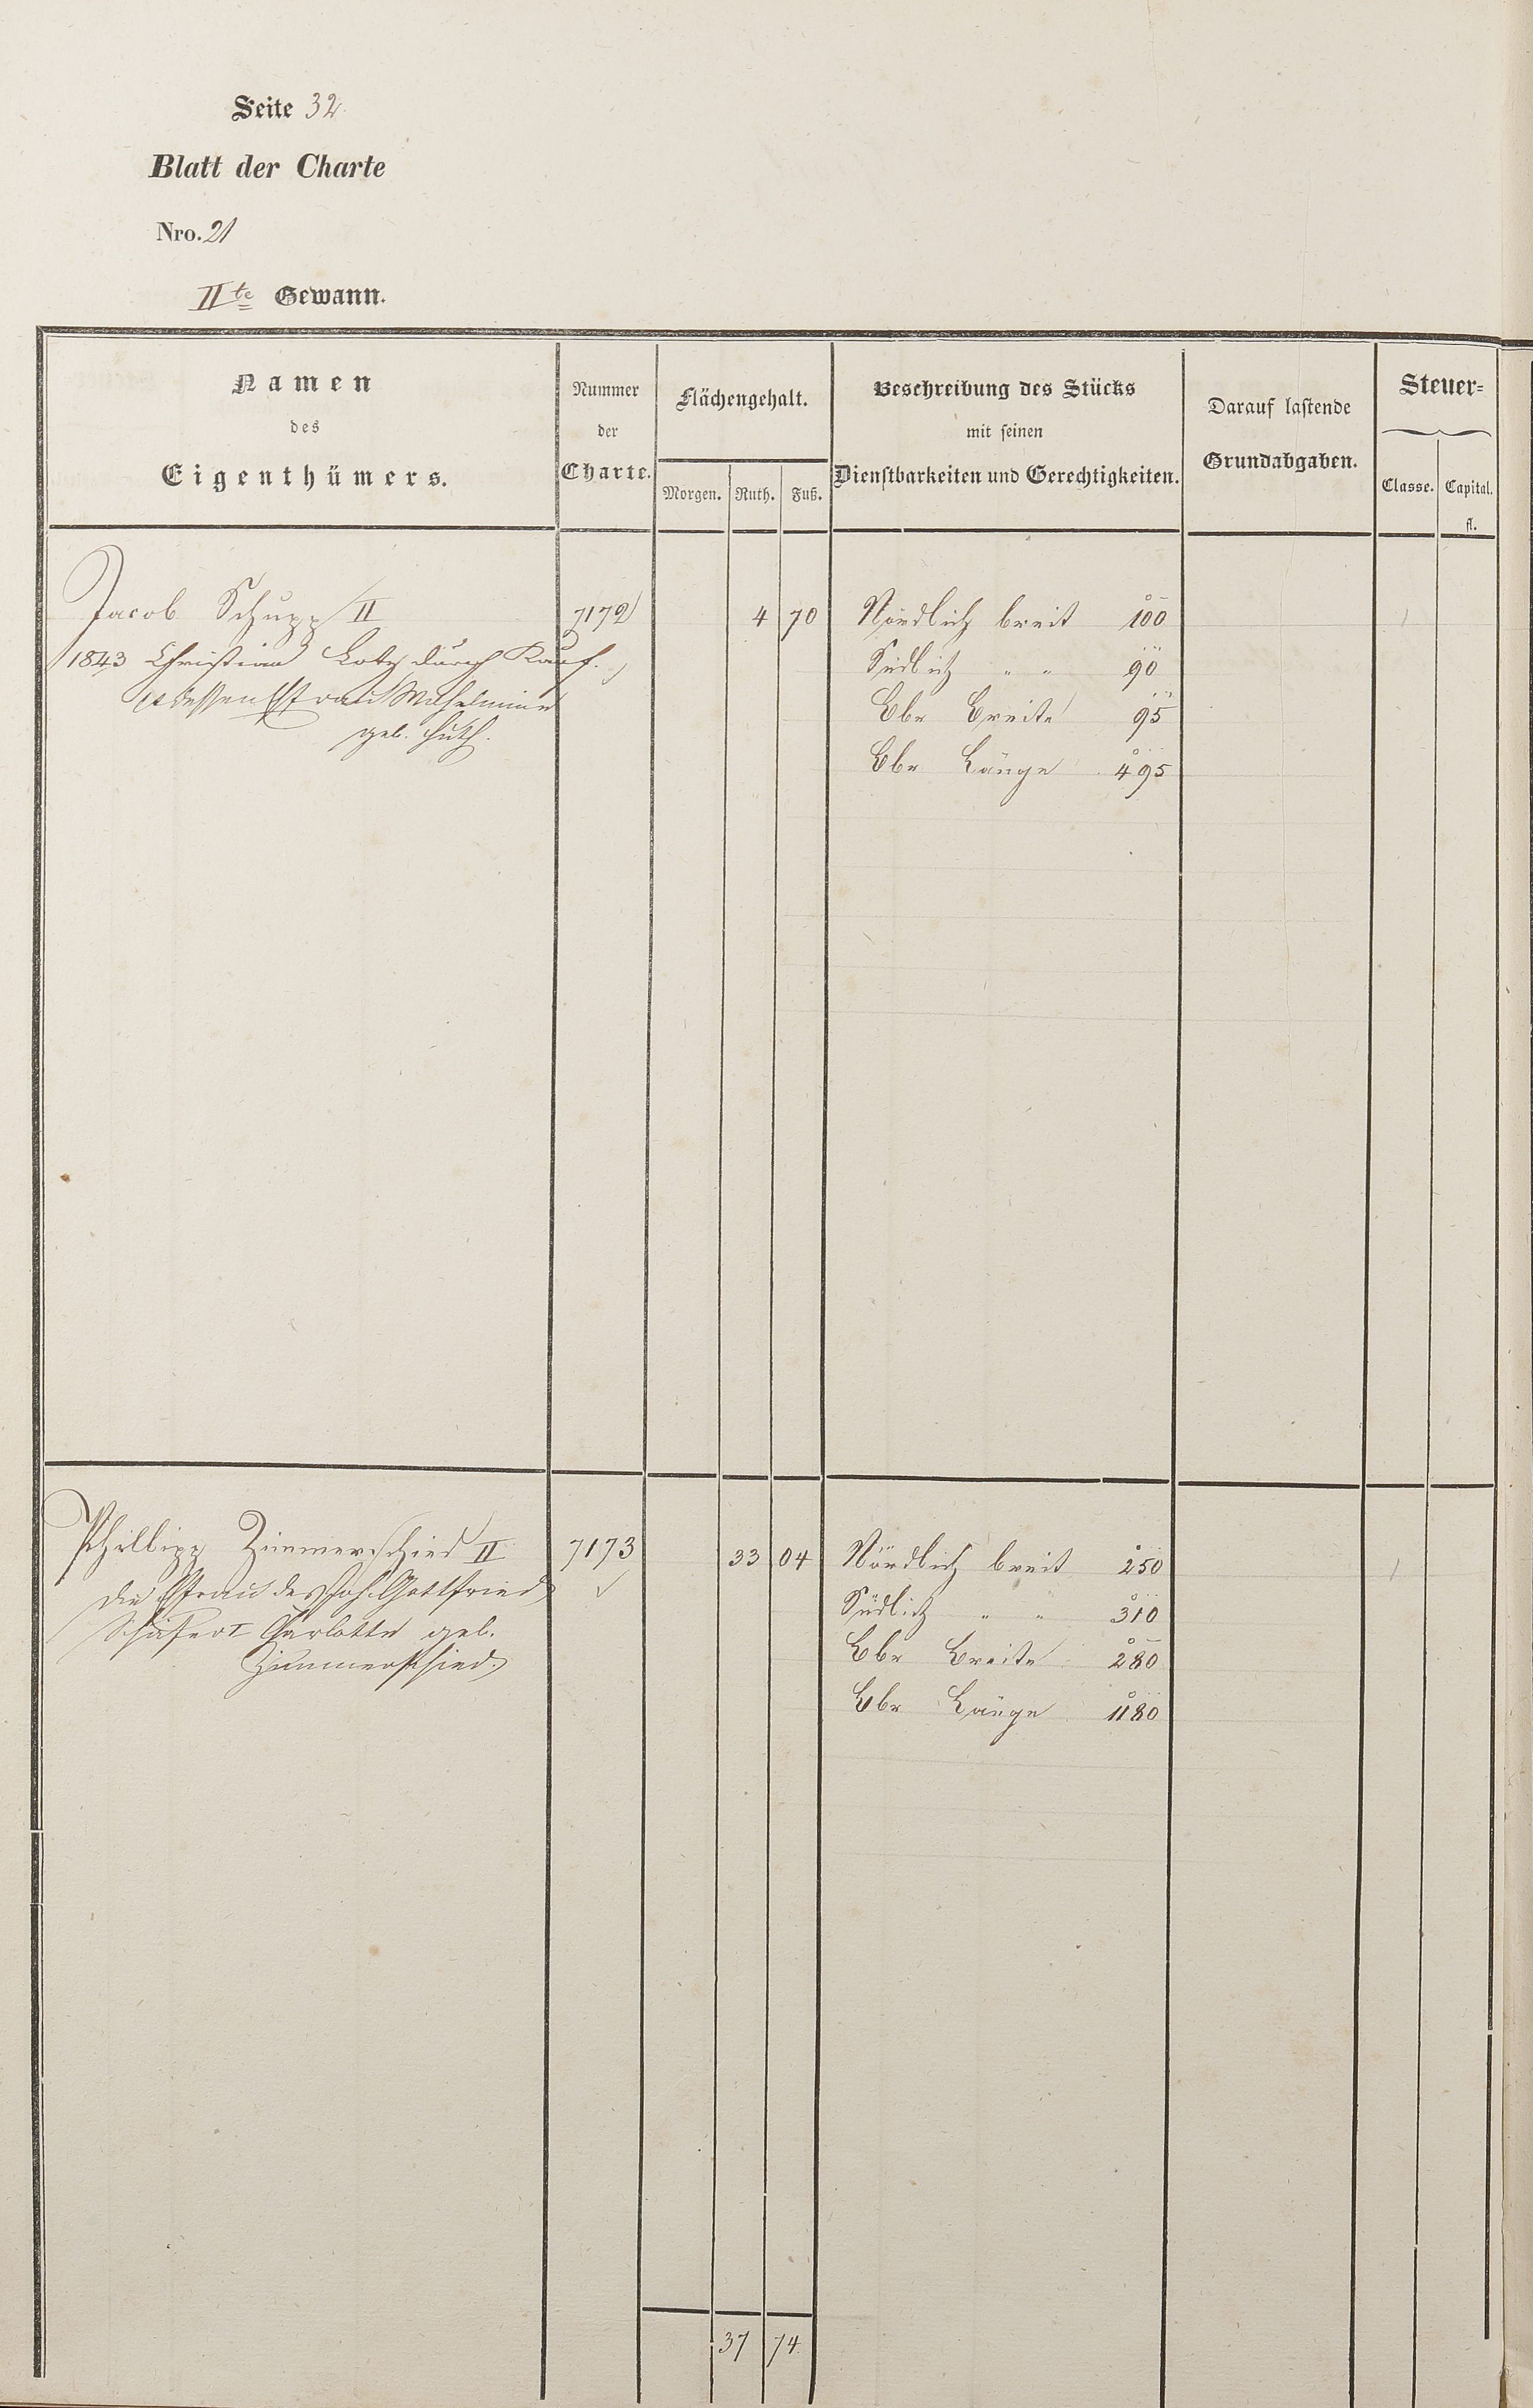 Seite 32
Blatt der Charte
Nro. 21
IIte Gewann.
Namen
des
Eigenthümers.
Nummer
der
Charte.
Flächengehalt.
Morgen. Ruth. Fuß.
Beschreibung des Stücks
mit seinen
Dienstbarkeiten und Gerechtigkeiten.
Darauf lastende
Grundabgaben.
Steuer-
Classe. Capital.
fl.
Jacob Schupp II 7172 4 70 Nördlich breit 100 1
1843 Christian Lotz durch Kauf. Südlich " " 90
dessen Ehefrau Wilhelmine Ebr Breite 95
geb. Huth.
Ebr Länge 495
Phillipp Zimmerschied II 7173 33 04 Nördlich breit 250 1
die Ehefrau des Joh. Gottfried Südlich " " 310
Schäfer I Charlotte geb. Ebr Breite 280
Zimmerschied.
Ebr Länge 1180
37 74